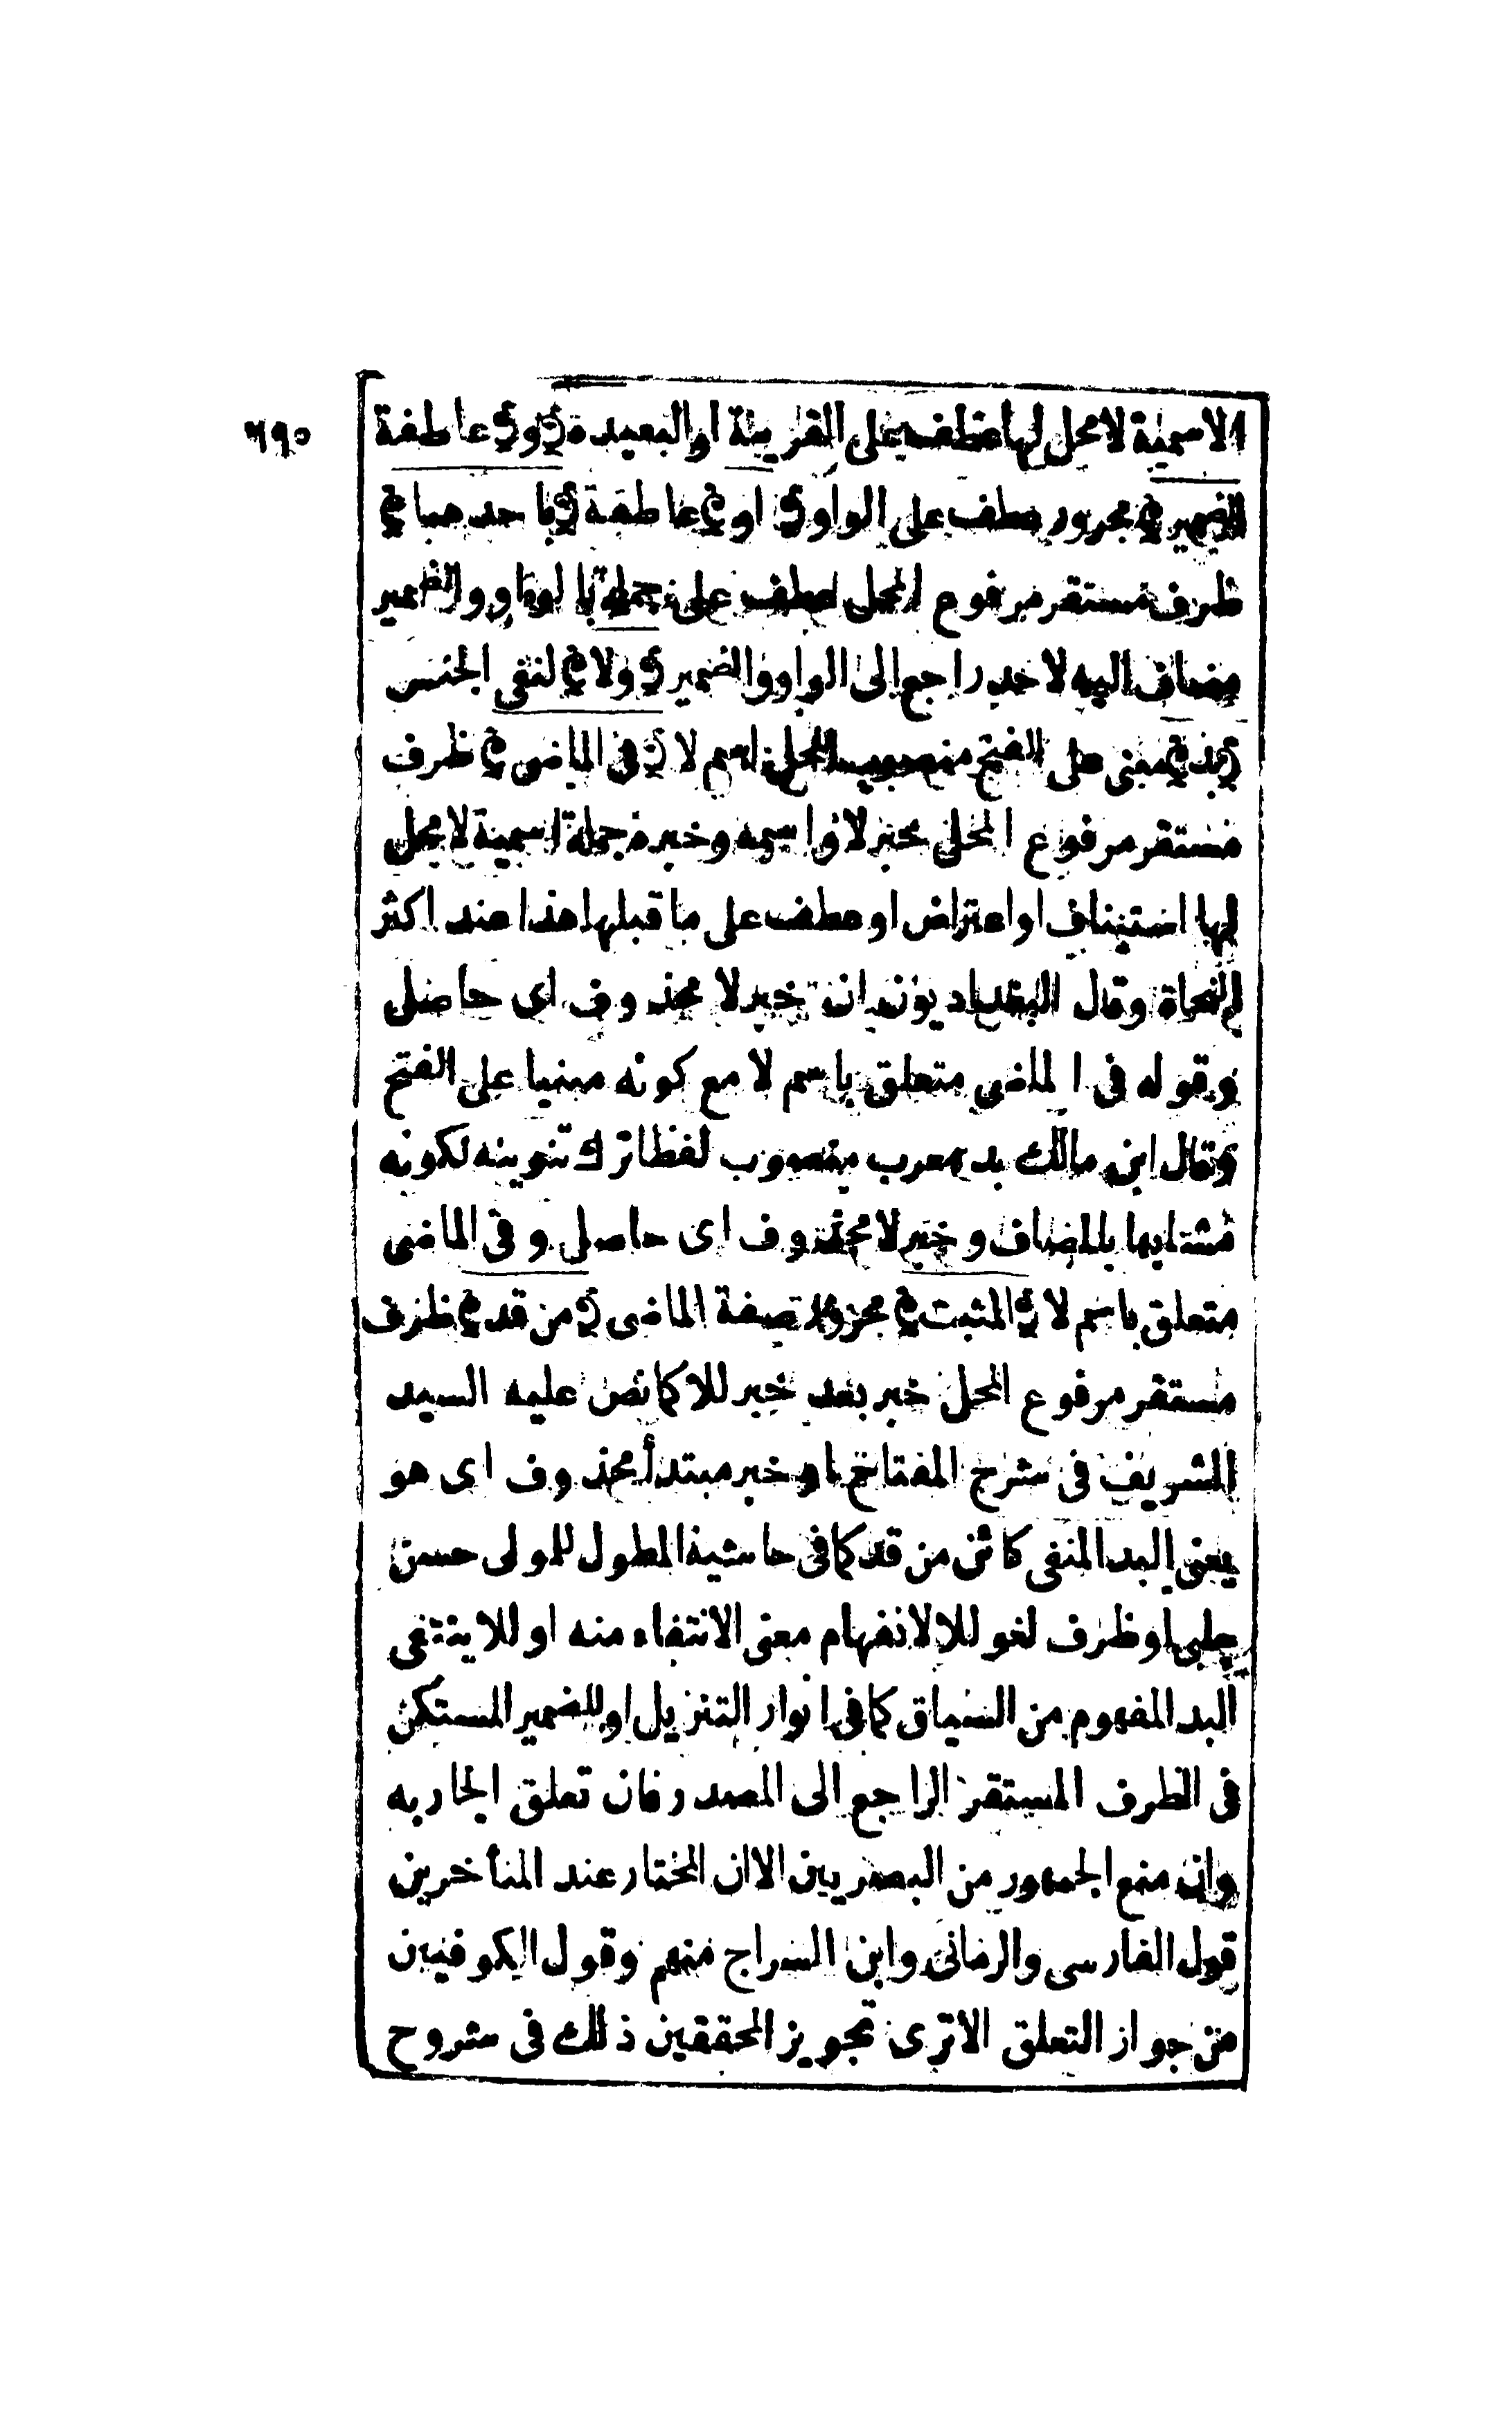 ٦٩٠
الاسمية لا محل لها عطف على القريبة او البعيدة ﴿و﴾ عاطفة
﴿الضمير﴾ مجرور عطف على الواو ﴿او﴾ عاطفة ﴿باحدهما﴾
ظرف مستقر مرفوع المحل عطف على جملة بالواو والضمير
مضاف اليه لاحد راجع الى الواو والضمير ﴿ولا﴾ لنفى الجنس
﴿بد﴾ مبنى على الفتح منصوب المحل اسم لا ﴿فى الماضى﴾ ظرف
مستقر مرفوع المحل خبر لا واسمه وخبره جملة اسمية لا محل
لها استيناف او اعتراض او عطف على ما قبلها هذا عند اكثر
النحاة وقال البغداديون ان خبر لا محذوف اى حاصل
وقوله فى الماضى متعلق باسم لا مع كونه مبنيا على الفتح
وقال ابن مالك بد معرب منصوب لفظا ترك تنوينه لكونه
مشابها بالمضاف وخبر لا محذوف اى حاصل وفى الماضى
متعلق باسم لا ﴿المثبت﴾ مجرور صفة الماضى ﴿من قد﴾ ظرف
مستقر مرفوع المحل خبر بعد خبر للا كما نص عليه السيد
الشريف فى شرح المفتاح او خبر مبتدأ محذوف اى هو
يعنى البد المنفى كائن من قد كما فى حاشية المطول للمولى حسن
چلبى او ظرف لغو للا لانفهام معنى الانتفاء منه او للا ينتفى
البد المفهوم من السياق كما فى انوار التنزيل او للضمير المستكن
فى الظرف المستقر الراجع الى المصدر فان تعلق الجار به
وان منع الجمهور من البصريين الا ان المختار عند المتأخرين
قول الفارسى والرمانى وابن السراج منهم وقول الكوفيين
من جواز التعلق الا ترى تجويز المحققين ذلك فى شروح